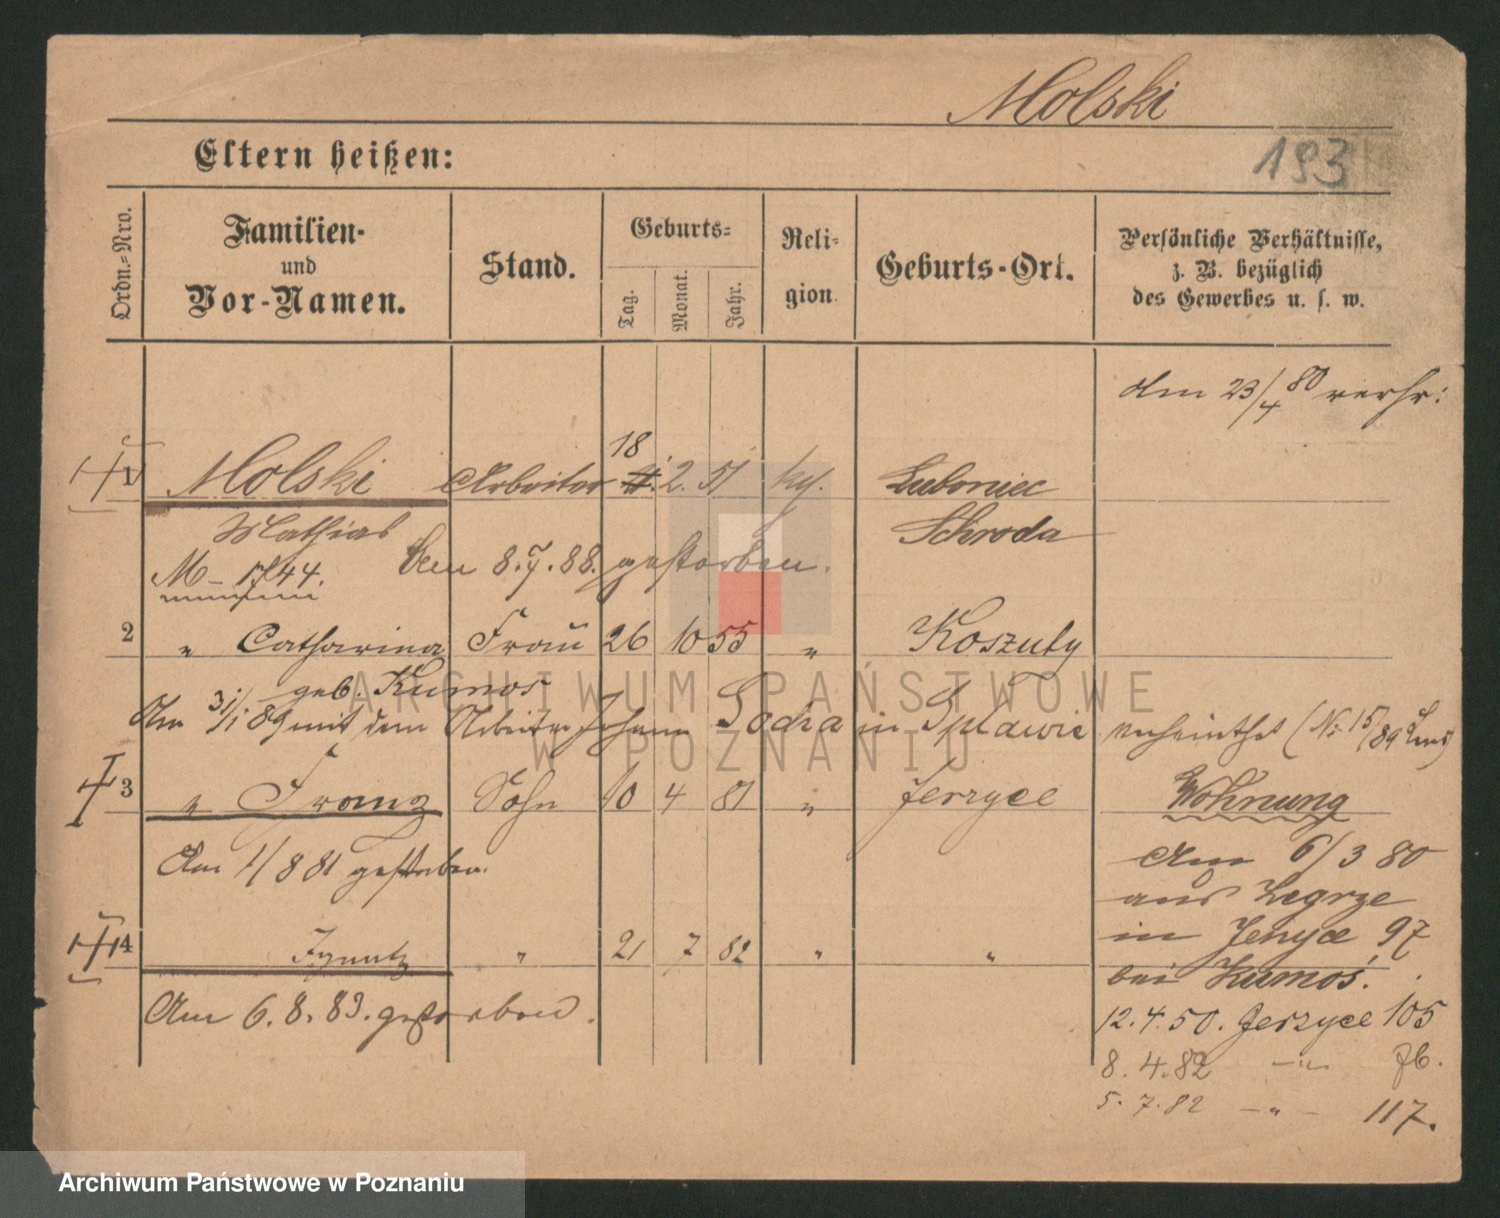 Molski
193
Eltern heißen:
Ordn.-Nro.
Familien-
und
Vor-Namen.
Stand.
Geburts-
Tag.
Monat.
Jahr.
Reli-
gion.
Geburts-Ort.
Persönliche Verhältnisse,
z. B. bezüglich
des Gewerbes u. s. w.
den 23/4 80 verhr:
18
1 Molski Arbeiter 2. 51 Luboniec
Mathias Schroda
M - 1744. Am 8.7.88. gestorben.
2 " Catharina Frau 26 10 55 " Koszuty
geb. Kumos
Am 31/1 89 mit dem Arbeiter Johann in verheirathet (No 15/89
3 " Franz Sohn 10 4 81 " Jerzyce
Wohnung
Am 1/8 81 gestorben.
Am 6/3 80
aus Zegrze
in Jerzyce 97
bei Kumos.
4 Ignatz " 21 7 82 " "
Am 6.8.83. gestorben.
12.4.50. Jerzyce 105
8.4.82 -"-
5.7.82 -"- 117.
ARCHIWUM PAŃSTWOWE
W POZNANIU
Archiwum Państwowe w Poznaniu